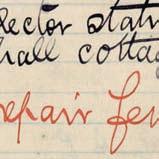 lector statu
hall cottag
repair fen